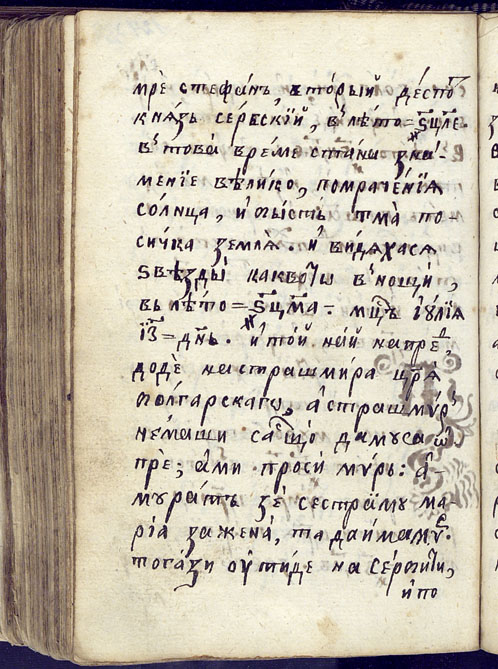 мрѐ стефа́нь, вто́рый де́спо
кнѧ́зь се́рбскїй, в̾лѣ́то = ҂ѕцле.
в̾това̀ вре́ме ста́нꙋ зна́-
менїе вели́ко, помраче́нїѧ
со́лнца, и҆ бы́сть тма̀ по-
сичка землѧ̀. и҆ ви́дѧхасѧ
ѕвѣ́зды̀ какво́тѡ в̾но́щи,
вь лѣ́то = ҂ѕцма ÷ мц҃ъ і҆ꙋ́лїѧ
і҆з = дн҃ь. и҆ то́й на́й напре́д,
додѐ на страшми́ра цр҃ѧ̀
бо́лгарскагѡ, а҆ страшмѵ́рь
не́маши са що̀ да мꙋ са ѡ
прѐ; а҆ми просѝ мѵ́рь: а҆-
мꙋра́ть зѐ сестра̀ мꙋ ма-
рі́ѧ за жена̀, та да и҆́ма мѵ́р.
тога́зи ѻу҆ти́де на се́рбїи,
и҆ по